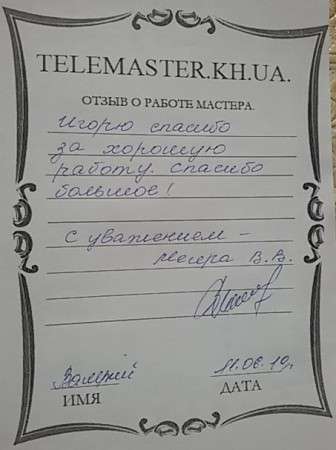 TELEMASTER.KH.UA.
ОТЗЫВ О РАБОТЕ МАСТЕРА.
Игорю спасибо
за хорошую
работу. Спасибо
большое!
С уважением –
В.В.
Валерий
11.06.19г
ИМЯ
ДАТА